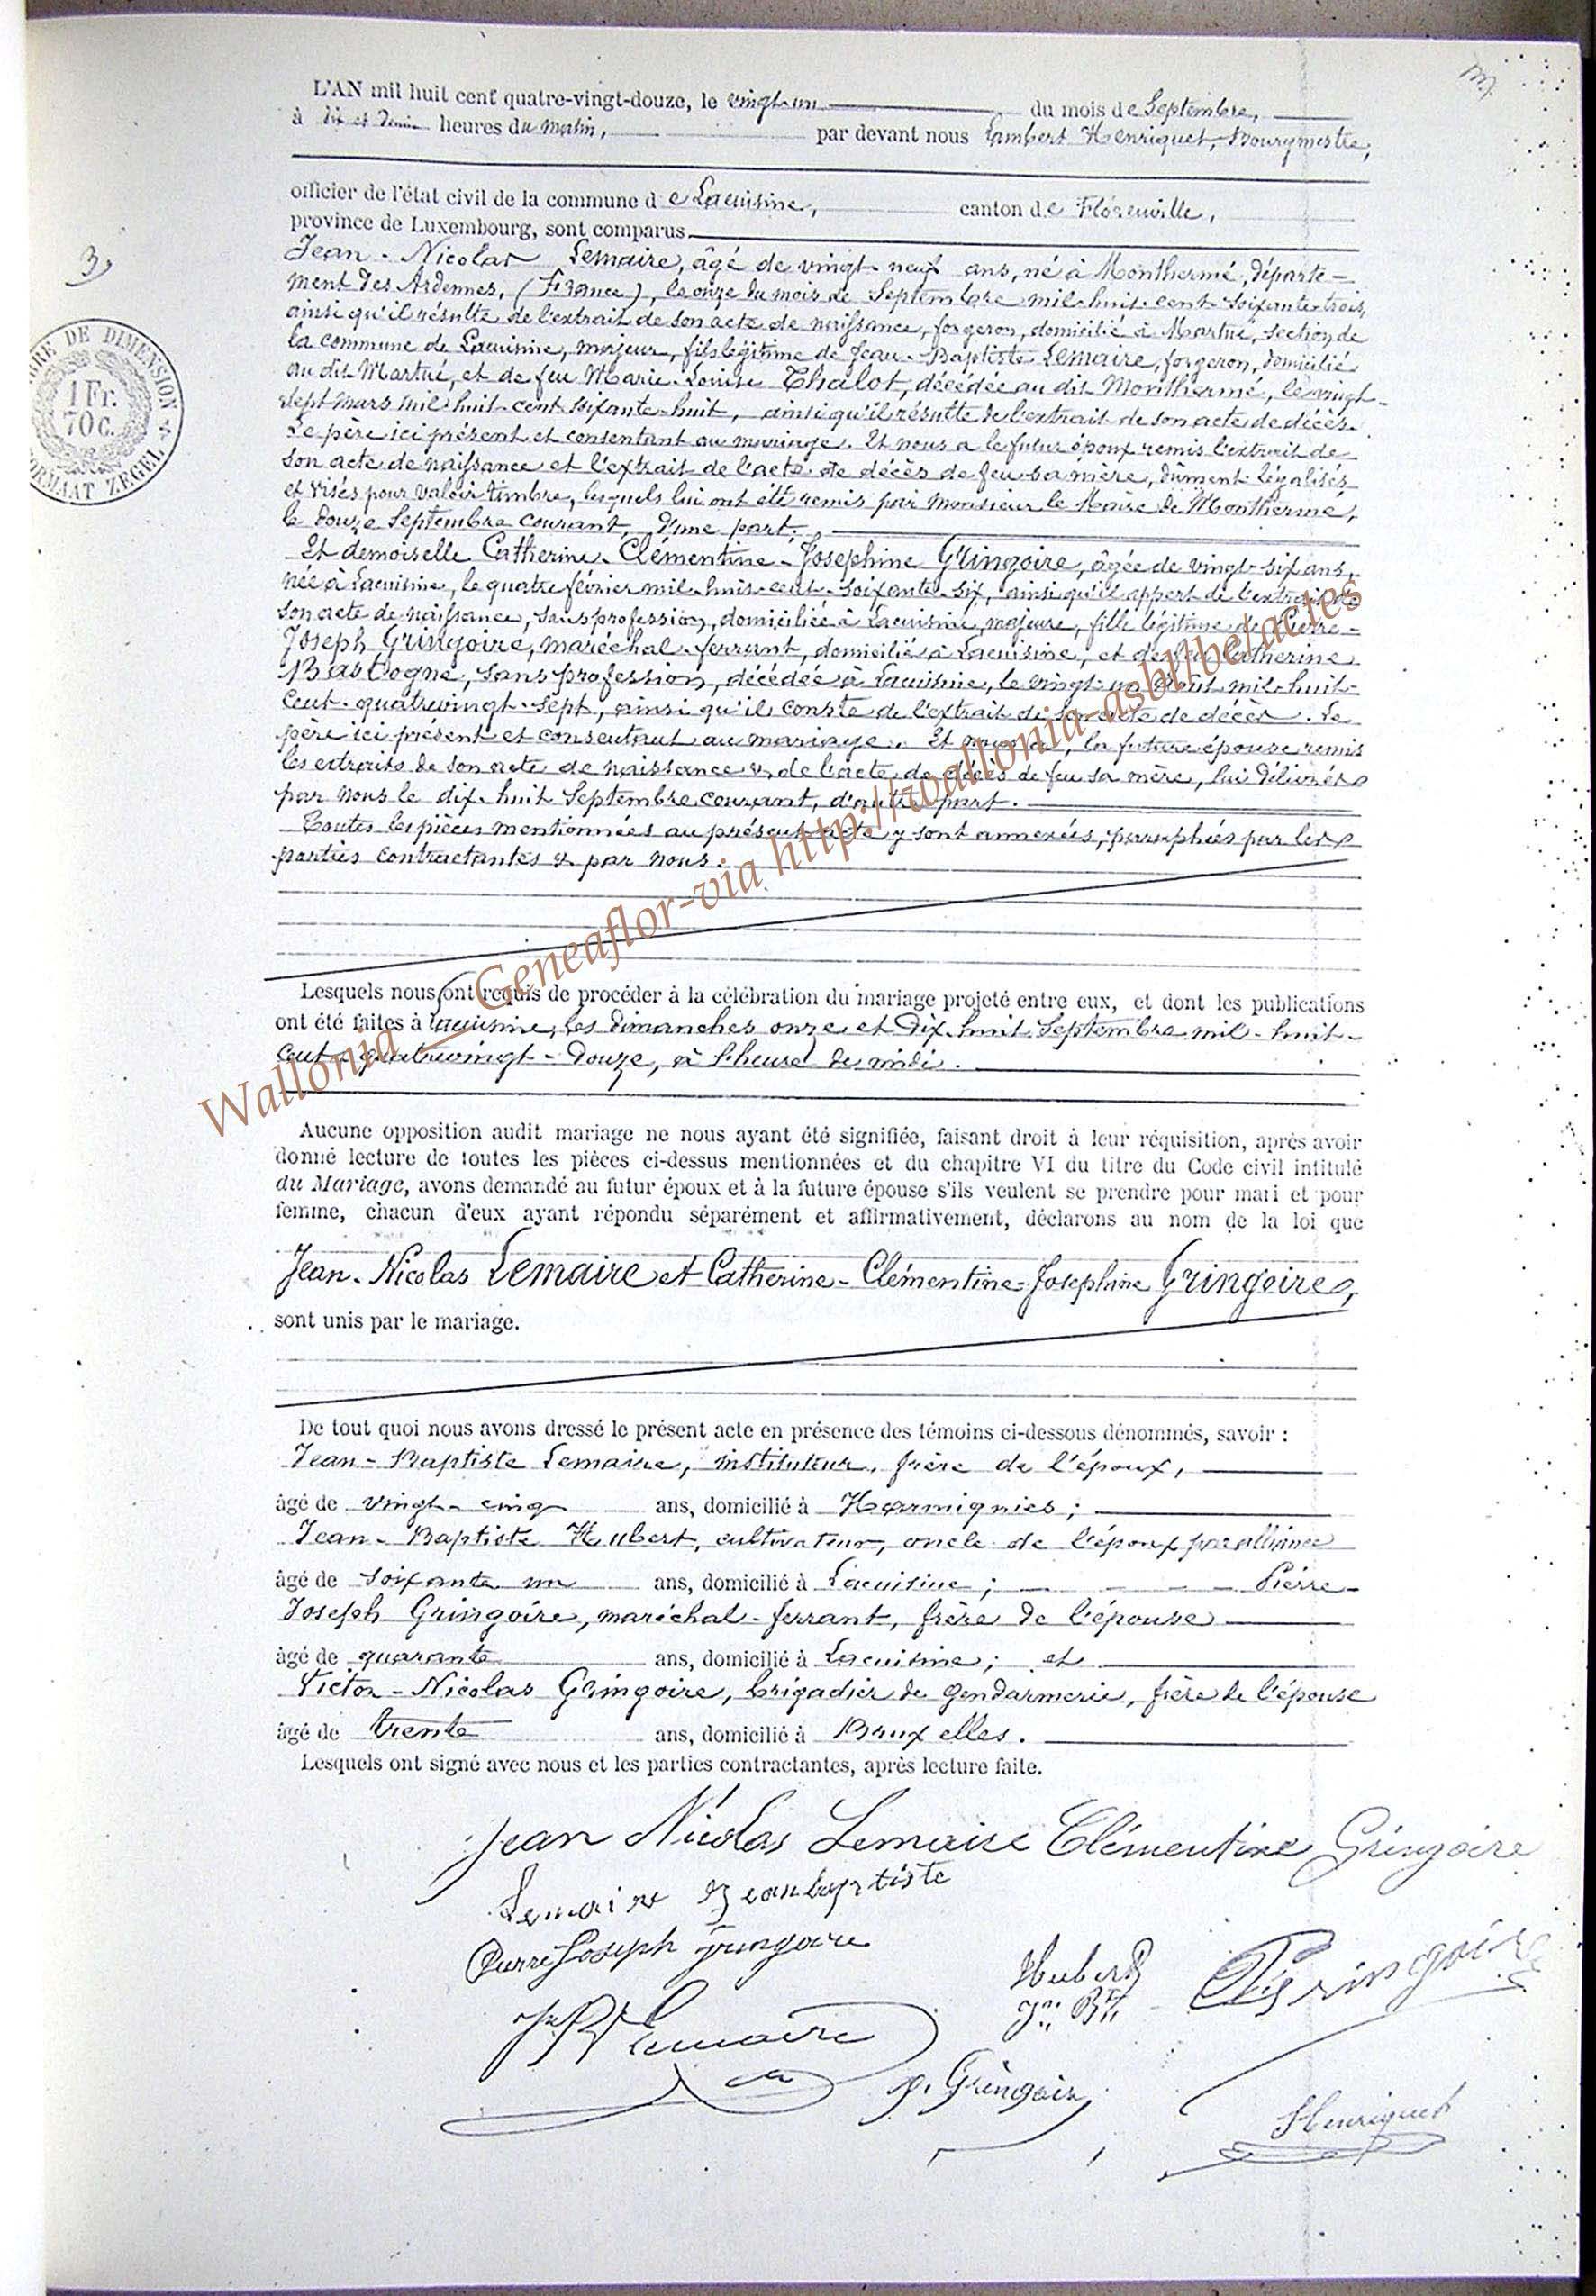 L'AN mil huit cent quatre-vingt-douze, le vingt-un du mois de Septembre,
à dix et demie heures du matin, par devant nous Lambert Henriquet, Bourgmestre,
officier de l'état civil de la commune de Lacuisine, canton de Florenville,
province de Luxembourg, sont comparus
Jean-Nicolas Lemaire, âgé de vingt-neuf ans, né à Monthermé, départe-
ment des Ardennes, (France), le onze du mois de Septembre mil-huit-cent-soixante-trois,
ainsi qu'il résulte de l'extrait de son acte de naissance, forgeron, domicilié à Martué, section de
la commune de Lacuisine, majeur, fils légitime de Jean-Baptiste Lemaire, forgeron, domicilié
au dit Martué, et de feu Marie-Louise Thalot, décédée au dit Monthermé, le vingt-
sept mars mil-huit-cent soixante-huit, ainsi qu'il résulte de l'extrait de son acte de décès.
Le père ici présent et consentant au mariage. Et nous a le futur époux remis l'extrait de
son acte de naissance et l'extrait de l'acte de décès de feu sa mère, dûment légalisés
et visés pour valoir timbre, lesquels lui ont été remis par Monsieur le Maire de Monthermé,
le douze Septembre courant, d'une part;
Et demoiselle Catherine-Clémentine-Josephine Gringoire, âgée de vingt-six ans,
née à Lacuisine, le quatre février mil-huit-cent-soixante-six, ainsi qu'il appert de l'extrait de
son acte de naissance, sans profession, domiciliée à Lacuisine, majeure, fille légitime de Pierre-
Joseph Gringoire, maréchal-ferrant, domicilié à Lacuisine, et de feu Catherine
Bastogne, sans profession, décédée à Lacuisine, le vingt-un Août mil-huit-
cent-quatrevingt-sept, ainsi qu'il conste de l'extrait de son acte de décès. Le
père ici présent et consentant au mariage. Et nous a, la future épouse remis
les extraits de son acte de naissance & de l'acte de décès de feu sa mère, lui délivrés
par nous le dix-huit Septembre courant, d'autre part.
Toutes les pièces mentionnées au présent acte y sont annexées, paraphées par les
parties contractantes & par nous.
Lesquels nous ont requis de procéder à la célébration du mariage projeté entre eux, et dont les publications
ont été faites à Lacuisine, les dimanches onze et dix-huit Septembre mil-huit-
cent-quatrevingt-douze, à l'heure de midi.
Aucune opposition audit mariage ne nous ayant été signifiée, faisant droit à leur réquisition, après avoir
donné lecture de toutes les pièces ci-dessus mentionnées et du chapitre VI du titre du Code civil intitulé
du Mariage, avons demandé au futur époux et à la future épouse s'ils veulent se prendre pour mari et pour
femme, chacun d'eux ayant répondu séparément et affirmativement, déclarons au nom de la loi que
Jean-Nicolas Lemaire et Catherine-Clémentine-Josephine Gringoire,
sont unis par le mariage.
De tout quoi nous avons dressé le présent acte en présence des témoins ci-dessous dénommés, savoir :
Jean-Baptiste Lemaire, instituteur, frère de l'époux,
âgé de vingt-cinq ans, domicilié à Harmignies;
Jean-Baptiste Hubert, cultivateur, oncle de l'époux par alliance
âgé de soixante un ans, domicilié à Lacuisine; Pierre-
Joseph Gringoire, maréchal-ferrant, frère de l'épouse
âgé de quarante ans, domicilié à Lacuisine; et
Victor-Nicolas Gringoire, brigadier de gendarmerie, frère de l'épouse
âgé de trente ans, domicilié à Bruxelles.
Lesquels ont signé avec nous et les parties contractantes, après lecture faite.
Jean Nicolas Lemaire Clémentine Gringoire
Lemaire Jean baptiste
Pierre Joseph Gringoire
Hubert Gringoire
Jn Bte
Lemaire
Gringoire
Henriquet
3
TIMBRE DE DIMENSION
1 Fr.
70 c.
FORMAAT ZEGEL
Wallonia - Geneaflor-via http://wallonia-asbl.be/actes